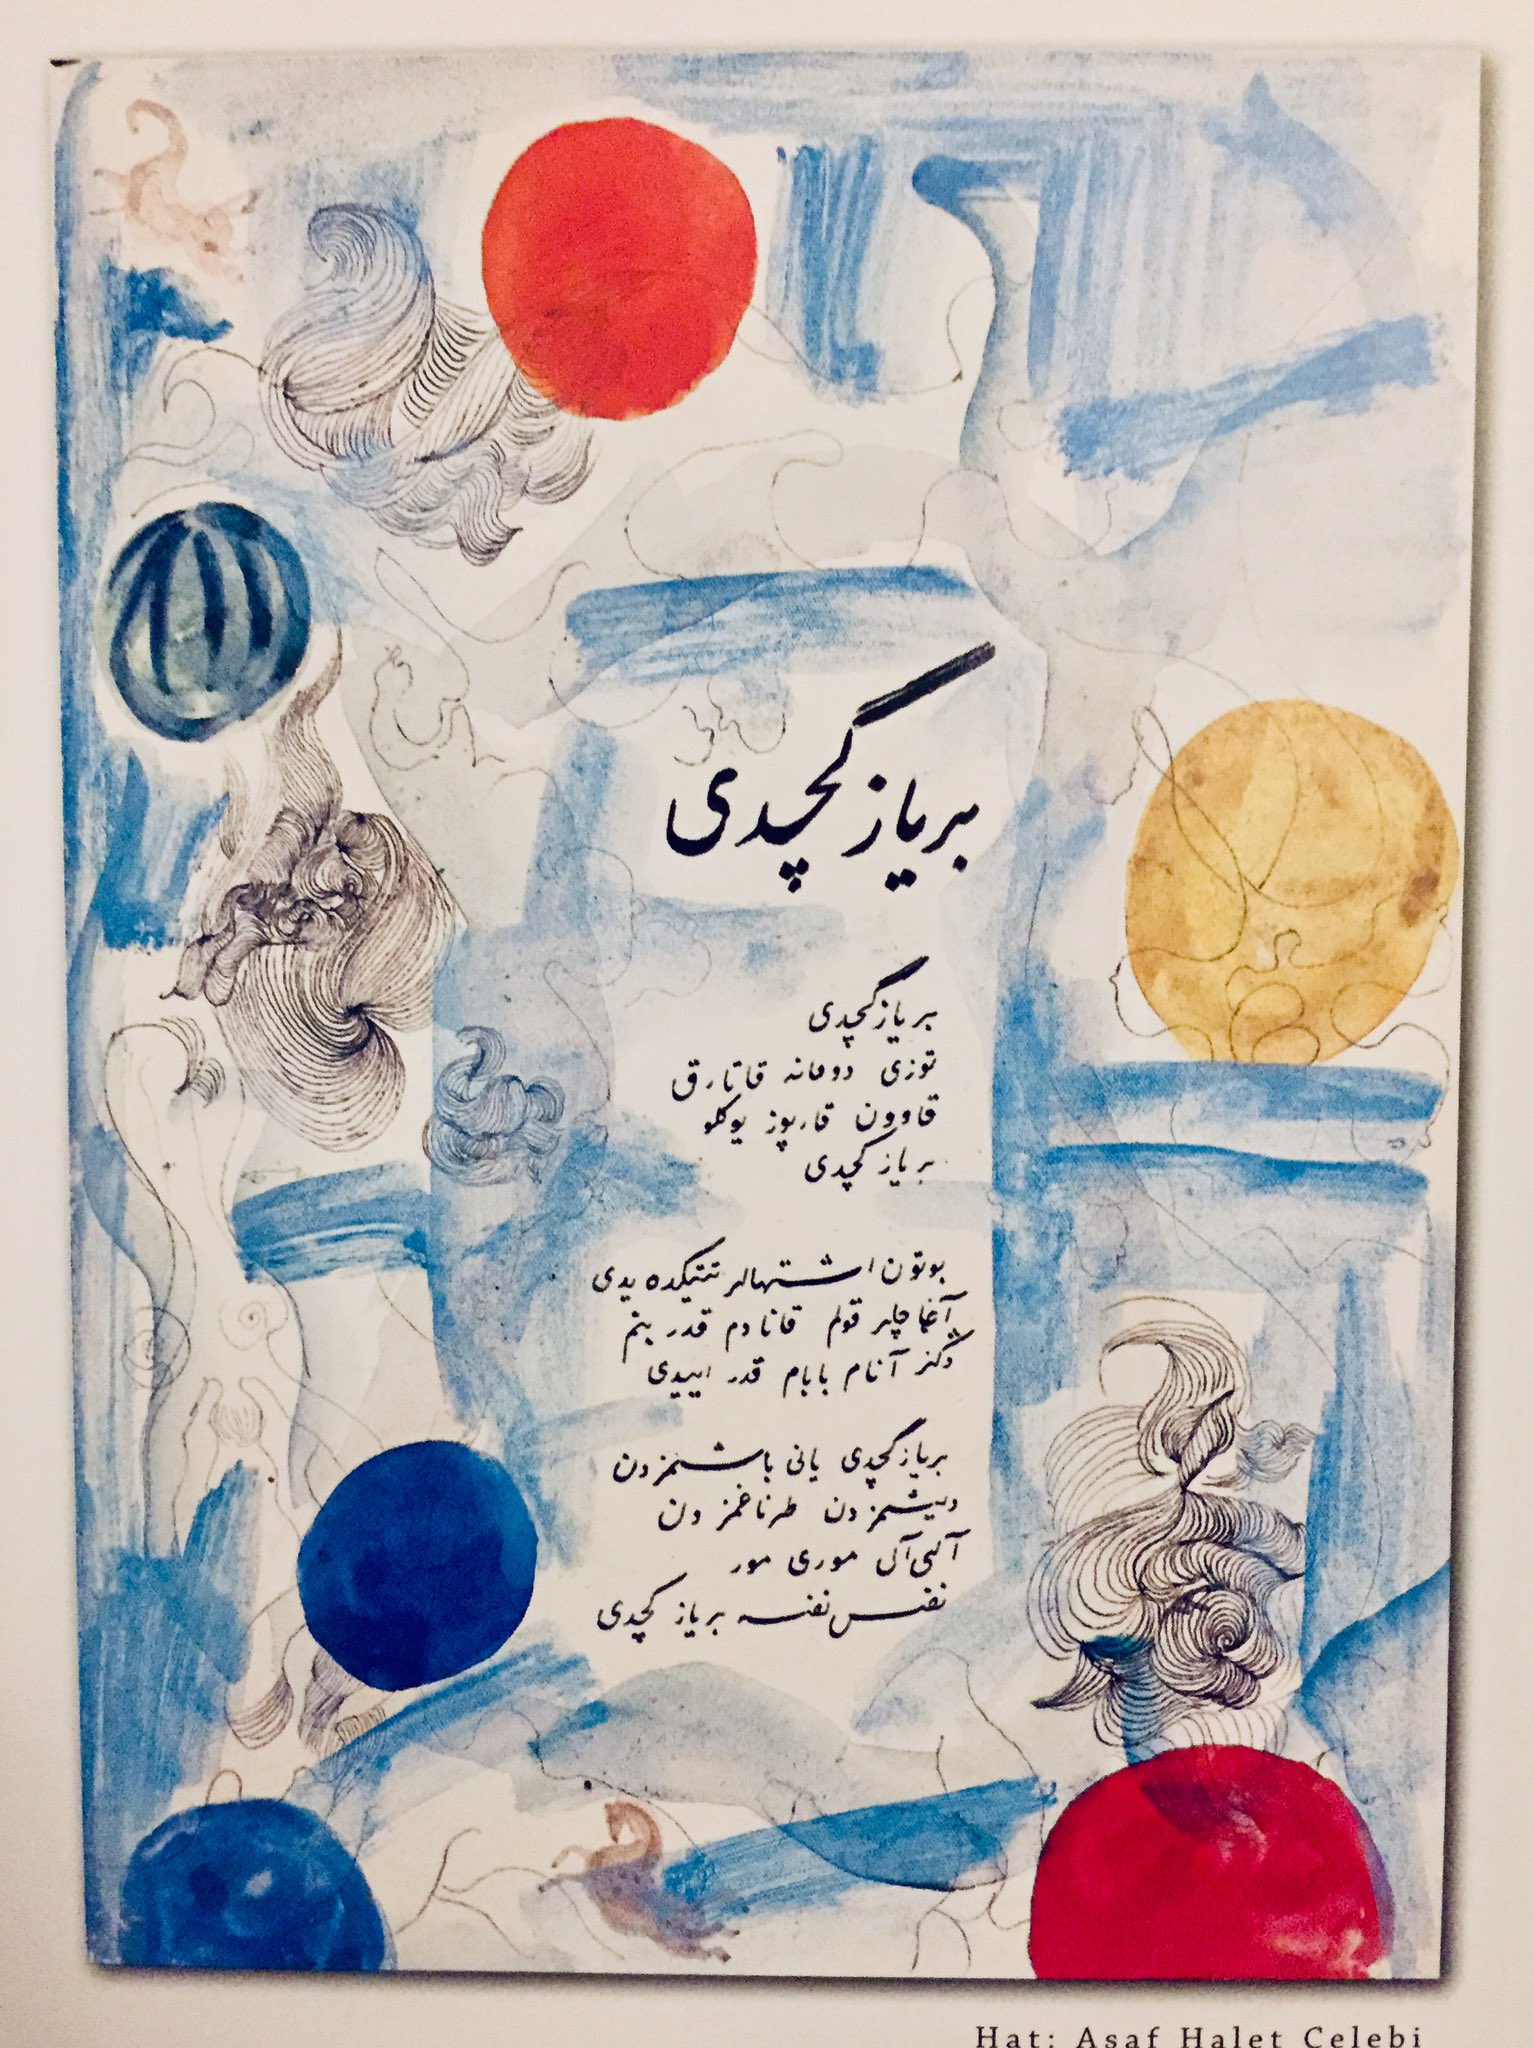 بر یاز گچدی
بر یاز گچدی
توزی دومانه قاتارق
قاوون قارپوز یوکلو
بر یاز گچدی
بوتون اشتهالر تتیکده یدی
آغاچلر قولم قانادم قدر بنم
دگنز آنام بابام قدر اییدی
بر یاز گچدی یانی باشمزدن
دیشمزدن طرناغمزدن
آلی آل موری مور
نفس نفسه بر یاز گچدی
Hat: Asaf Halet Çelebi